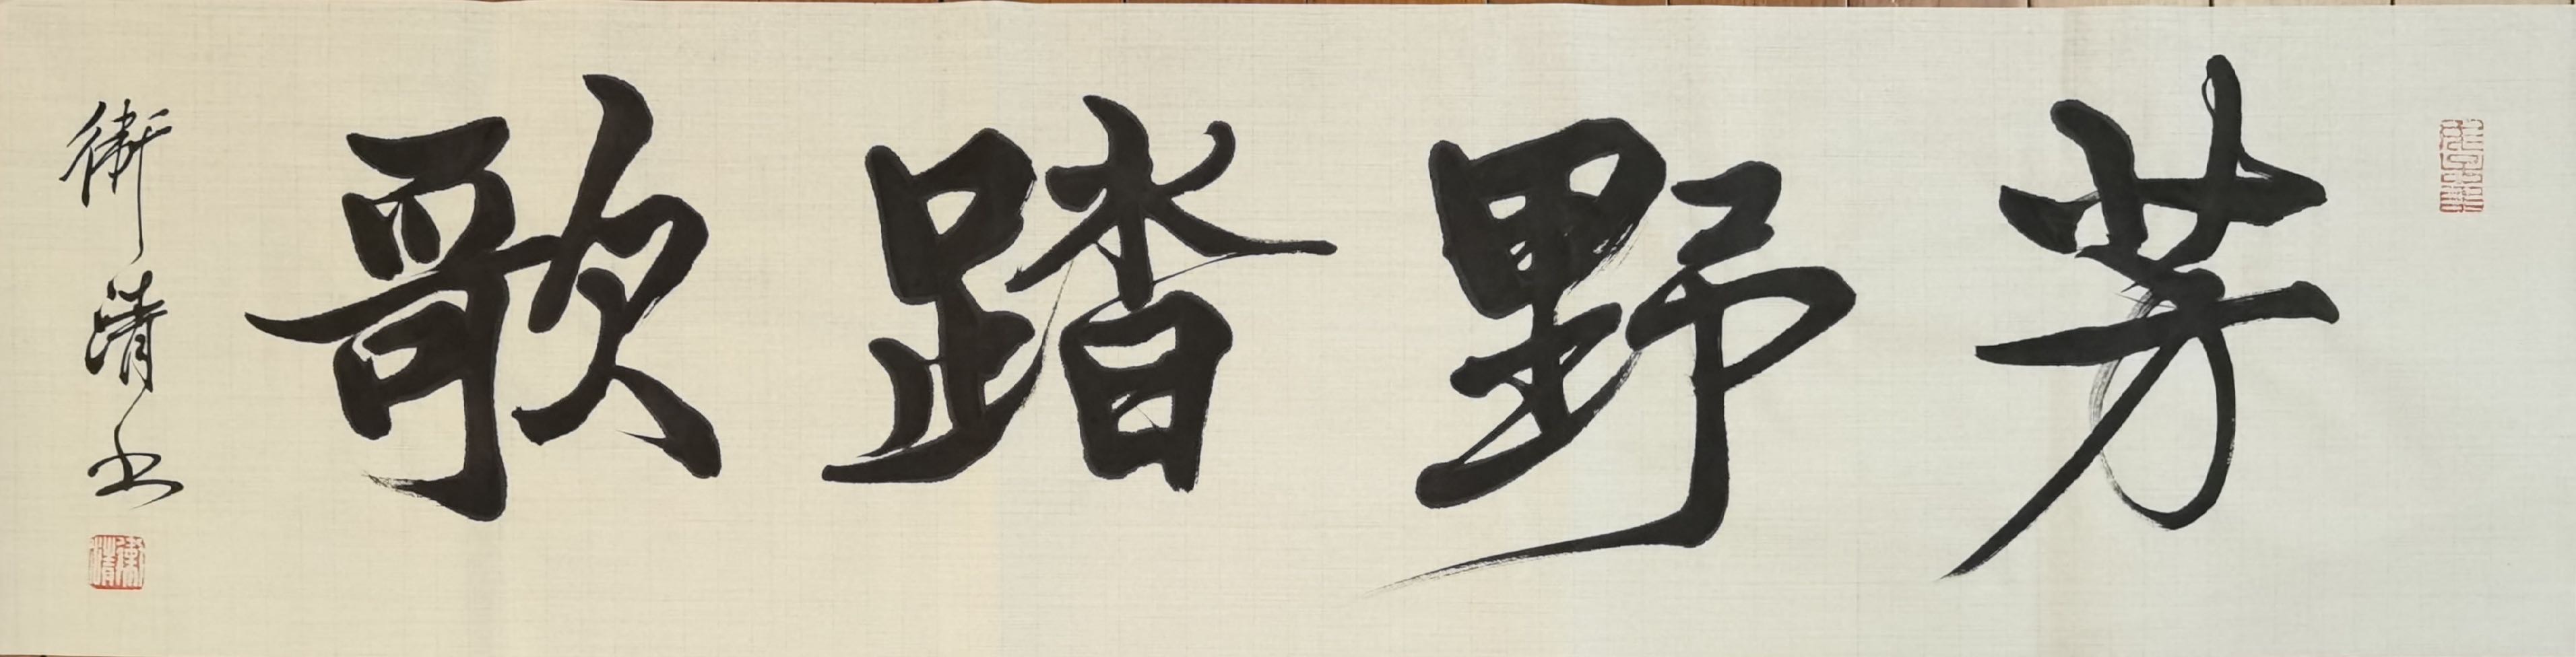 芳野踏歌
衛清书
衛清